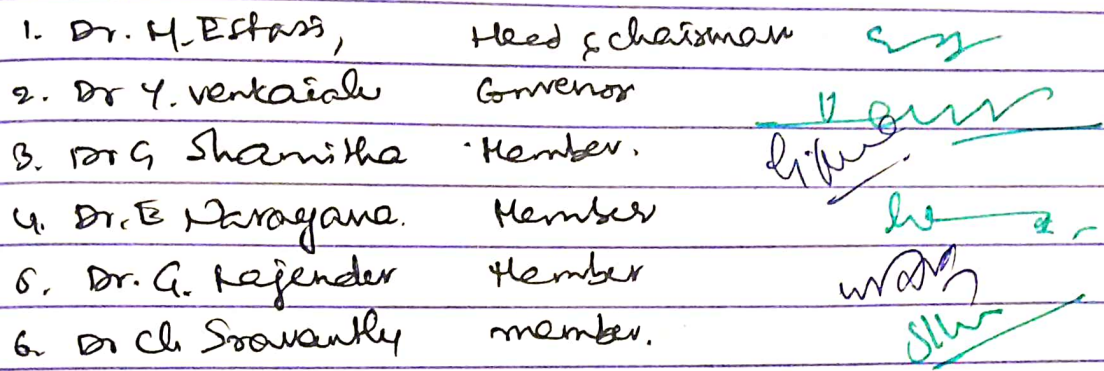 1. Dr. M. Estari, Head & chairman
2. Dr Y. Venkaiah Convenor
3. Dr G Shamitha Member.
4. Dr. E Narayana. Member
5. Dr. G. Rajender Member
6. Dr Ch Sravanthy member.